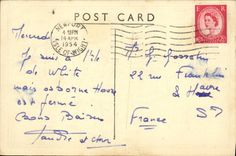 POST CARD
NEWPORT
ISLE OF WIGHT
4 - PM
14 APR
1954
Mercredi
Je suis à l'île
de White
mais osborne House
est fermé
Bons Baisers
22 rue Franklin
Le Havre
France